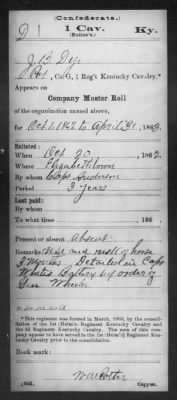 (Confederate.)
D 1 1 Cav. Ky.
(Butler's.)
J B Dye
Pvt, Co. G, 1 Reg't Kentucky Cavalry.*
Appears on
Company Muster Roll
of the organization named above,
for Oct 1. 1862 to April 31, 1863.
Enlisted:
When Oct 20, 1862.
Where Elizabethtown
By whom Capt
Period 3 years
Last paid:
By whom
To what time , 186 .
Present or absent Absent.
Remarks: Hire and of horse
Detailed in Capt
Battery by order of
Gen Wheeler
*This regiment was formed in March, 1863, by the consolidation
of the 1st (Helm's) Regiment Kentucky Cavalry and
the 3d Regiment Kentucky Cavalry. The men of this company
appear to have served in the 1st (Helm's) Regiment Kentucky
Cavalry prior to the consolidation.
Book mark:
(642) Copyist.